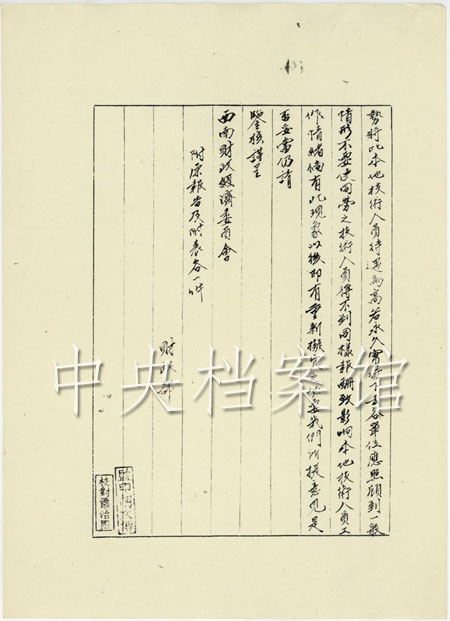 勢將比本地技術人員待遇為高若永久實行下去各單位應照顧到一般
情形不要使同勞之技術人員得不到同樣報酬致影响本地技術人員工
作情緒倘有此現象以後即有重新擬定必要我們所提意見是
否妥當仍請
鑒核謹呈
西南財政經濟委員會
附原報告及附表各一件
財政部
中央档案馆
監印
校對